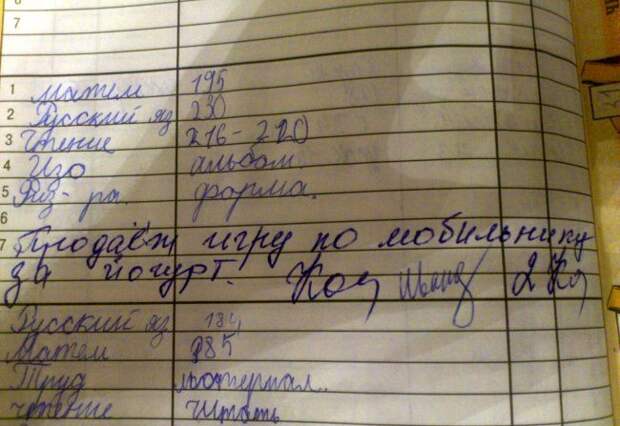 7
1 Матем 195
2 Русский яз 230
3 Чтение 216-220
4 Изо альбом
5 Физ-ра. форма.
6
7 Продаёж игру по мобильнику
за йогурт.
Русский яз 184
Матем 185
Труд материал..
чтение читать